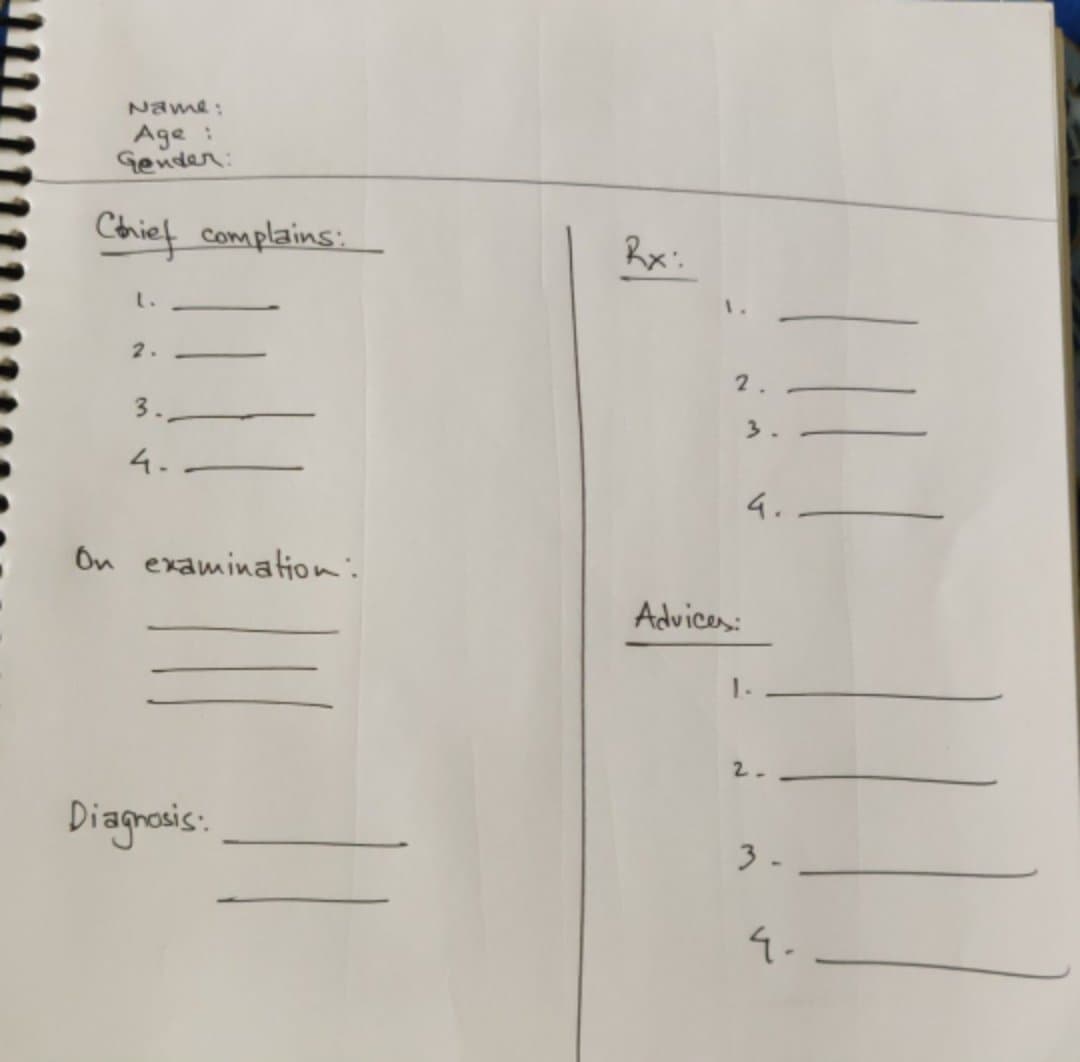 Name:
Age :
Gender:
Chief complains:
1.
2.
3.
4.
On examination:
Diagnosis:
Rx:
1.
2.
3.
4.
Advices:
1.
2.
3.
4.